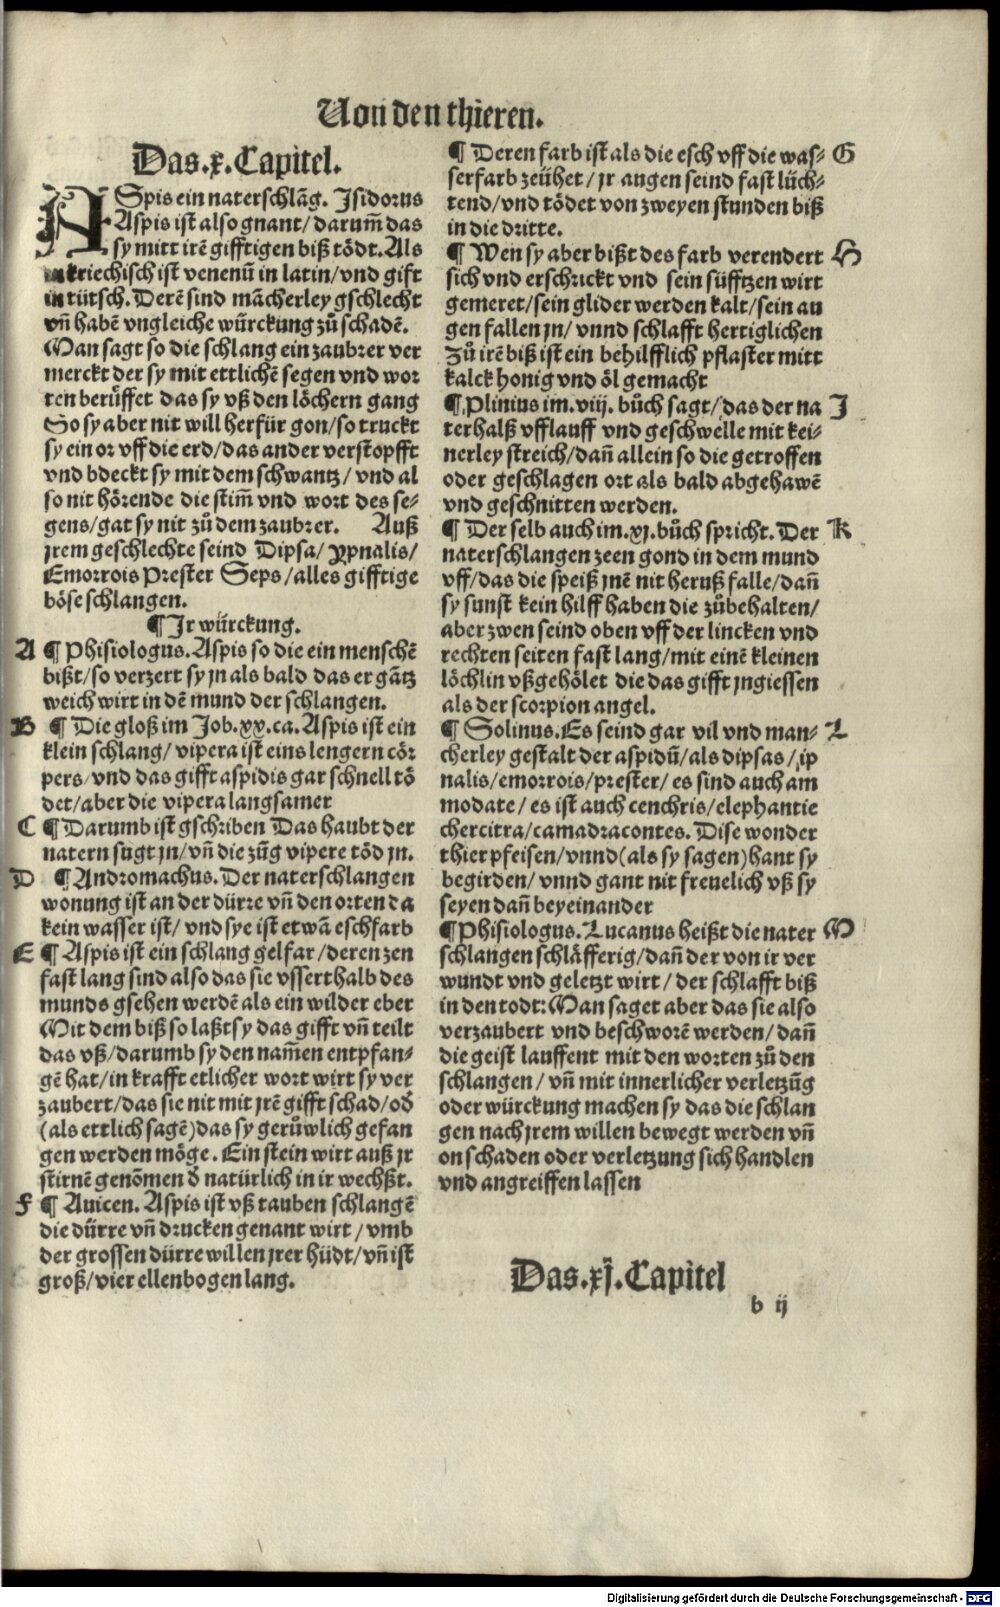 Von den thieren.
Das.x.Capitel.
ASpis ein naterschlãg. Isidorus
Aspis ist also gnant/ darum̃ das
sy mitt irẽ gifftigen biß tödt. Als
kriechisch ist venenũ in latin/vnd gift
in tütsch. Derẽ sind mãcherley gschlecht
vñ habẽ vngleiche würckung zů schadẽ.
Man sagt so die schlang ein zaubrer ver
merckt der sy mit ettlichẽ segen vnd wor
ten berüffet das sy vß den löchern gang
So sy aber nit will herfür gon/so truckt
sy ein or vff die erd/das ander verstopfft
vnd bdeckt sy mit dem schwantz/ vnd al
so nit hörende die stim̃ vnd wort des se-
gens/gat sy nit zů dem zaubrer. Auß
jrem geschlechte seind Dipsa/ Xpnalis/
Emorrois Prester Seps/alles gifftige
böse schlangen.
¶ Ir würckung.
A ¶ Phisiologus. Aspis so die ein menschẽ
bißt/so verzert sy jn als bald das er gãtz
weich wirt in dẽ mund der schlangen.
B ¶ Die gloß im Job.xx.ca. Aspis ist ein
klein schlang/ vipera ist eins lengern cör
pers/vnd das gifft aspidis gar schnell tö
det/aber die vipera langsamer
C ¶ Darumb ist gschriben Das haubt der
natern sugt jn/vñ die zũg vipere töd jn.
D ¶ Andromachus. Der naterschlangen
wonung ist an der dürre vñ den orten da
kein wasser ist/ vnd sye ist etwã eschfarb
E ¶ Aspis ist ein schlang gelfar/deren zen
fast lang sind also das sie vsserthalb des
munds gsehen werdẽ als ein wilder eber
Mit dem biß so laßt sy das gifft vñ teilt
das vß/darumb sy den nam̃en entpfan-
gẽ hat/in krafft etlicher wort wirt sy ver
zaubert/das sie nit mit jrẽ gifft schad/od̃
(als ettlich sagẽ)das sy gerůwlich gefan
gen werden möge. Ein stein wirt auß jr
stirnẽ genõmen d̃ natürlich in ir wechßt.
F ¶ Auicen. Aspis ist vß tauben schlangẽ
die dürre vñ drucken genant wirt/vmb
der grossen dürre willen jrer hüdt/vñ ist
groß/vier ellenbogen lang.
¶ Deren farb ist als die esch vff die was- G
serfarb zeühet/jr augen seind fast lüch-
tend/vnd tödet von zweyen stunden biß
in die dritte.
¶ Wen sy aber bißt des farb verendert H
sich vnd erschrickt vnd sein süfftzen wirt
gemeret/sein glider werden kalt/sein au
gen fallen jn/ vnnd schlafft hertiglichen
Zů irẽ biß ist ein behilfflich pflaster mitt
kalck honig vnd öl gemacht
¶ Plinius im.viij. bůch sagt/das der na I
terhalß vfflauff vnd geschwelle mit kei-
nerley streich/dañ allein so die getroffen
oder geschlagen ort als bald abgehawẽ
vnd geschnitten werden.
¶ Der selb auch im.xj.bůch spricht. Der K
naterschlangen zeen gond in dem mund
vff/das die speiß jnẽ nit heruß falle/dañ
sy sunst kein hilff haben die zůbehalten/
aber zwen seind oben vff der lincken vnd
rechten seiten fast lang/mit einẽ kleinen
löchlin vßgehölet die das gifft jngiessen
als der scorpion angel.
¶ Solinus. Es seind gar vil vnd man- L
cherley gestalt der aspidũ/als dipsas/ip
nalis/emorrois/prester/ es sind auch am
modate/ es ist auch cenchris/elephantie
chercitra/camadracontes. Dise wonder
thier pfeisen/vnnd(als sy sagen)hant sy
begirden/ vnnd gant nit freuelich vß sy
seyen dañ beyeinander
¶ Phisiologus. Lucanus heißt die nater M
schlangen schläfferig/dañ der von ir ver
wundt vnd geletzt wirt/der schlafft biß
in den todt: Man saget aber das sie also
verzaubert vnd beschworẽ werden/ dañ
die geist lauffent mit den worten zů den
schlangen/ vñ mit innerlicher verletzũg
oder würckung machen sy das die schlan
gen nach jrem willen bewegt werden vñ
on schaden oder verletzung sich handlen
vnd angreiffen lassen
Das.xj.Capitel
b ij
Digitalisierung gefördert durch die Deutsche Forschungsgemeinschaft - DFG